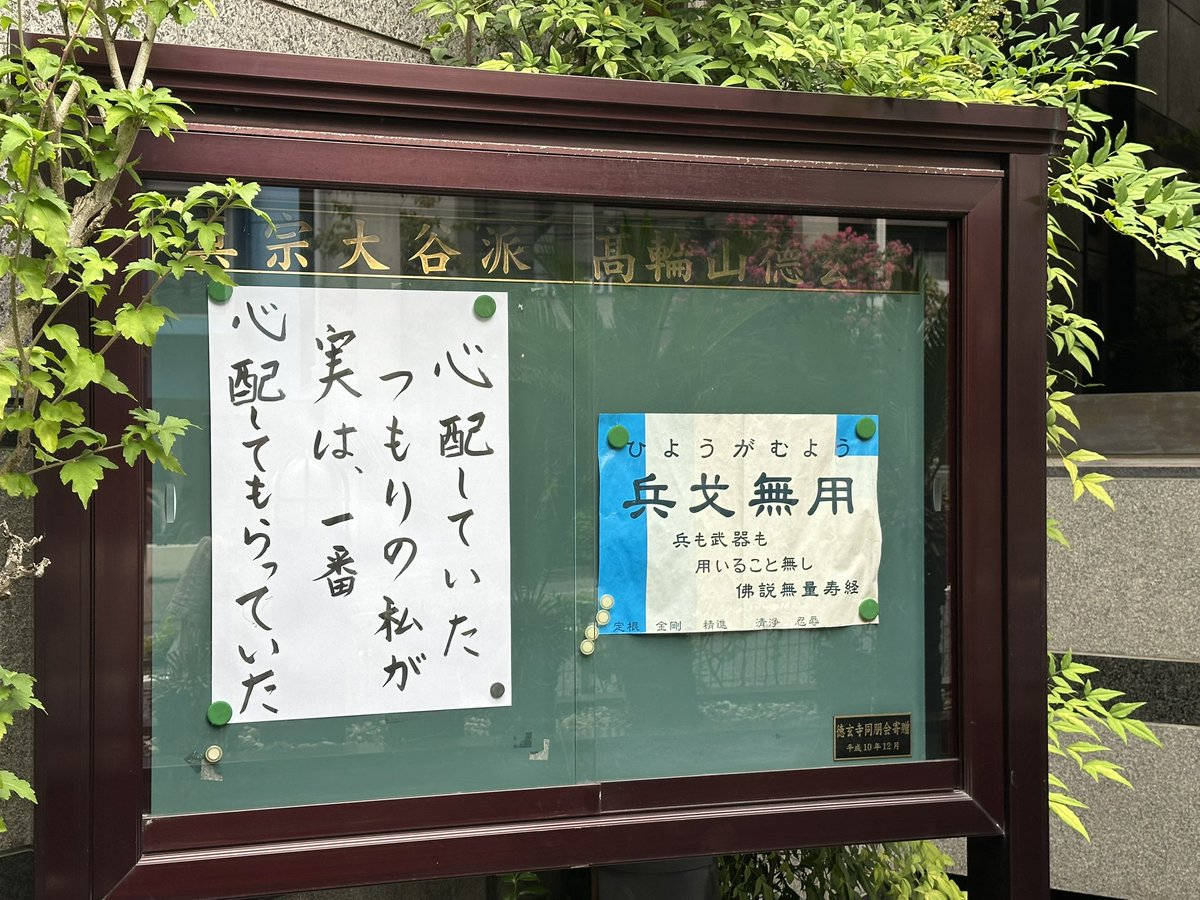 宗大谷派 高輪山德玄寺
心配していた
つもりの私が
実は、一番
心配してもらっていた
ひょうがむよう
兵戈無用
兵も武器も
用いること無し
佛説無量寿経
定根 金剛 精進 清浄 忍辱
徳玄寺同朋会寄贈
平成10年12月